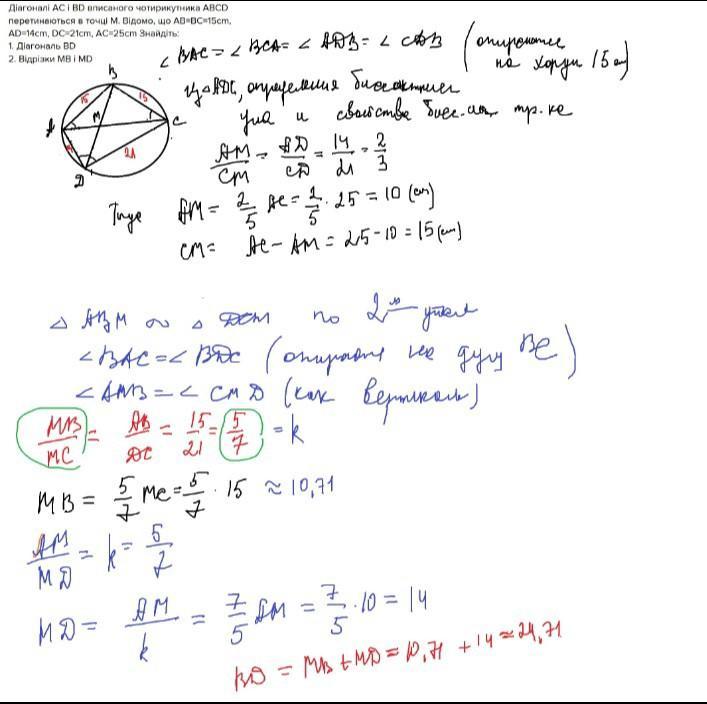 Діагоналі AC і BD вписаного чотирикутника ABCD
перетинаються в точці M. Відомо, що AB=BC=15cm,
AD=14cm, DC=21cm, AC=25cm Знайдіть:
1. Діагональ BD
2. Відрізки MB і MD
∠BAC = ∠BCA = ∠ADB = ∠CDB (опираются
на хорды 15 см)
B
15
15
A
M
C
14
21
D
Из △ADC, определения биссектрисы
угла и свойства бисс. тр-ка
AM/CM = AD/CD = 14/21 = 2/3
AM = 2/5 AC = 2/5 · 25 = 10 (см)
CM = AC − AM = 25 − 10 = 15 (см)
△ ABM ∼ △ DCM по 2 углам
∠BAC = ∠BDC (опираются на дугу BC)
∠AMB = ∠CMD (как вертикал)
MB/MC = AB/DC = 15/21 = 5/7 = k
MB = 5/7 MC = 5/7 · 15 ≈ 10,71
AM/MD = k = 5/7
MD = AM/k = 7/5 AM = 7/5 · 10 = 14
BD = MB + MD = 10,71 + 14 ≈ 24,71